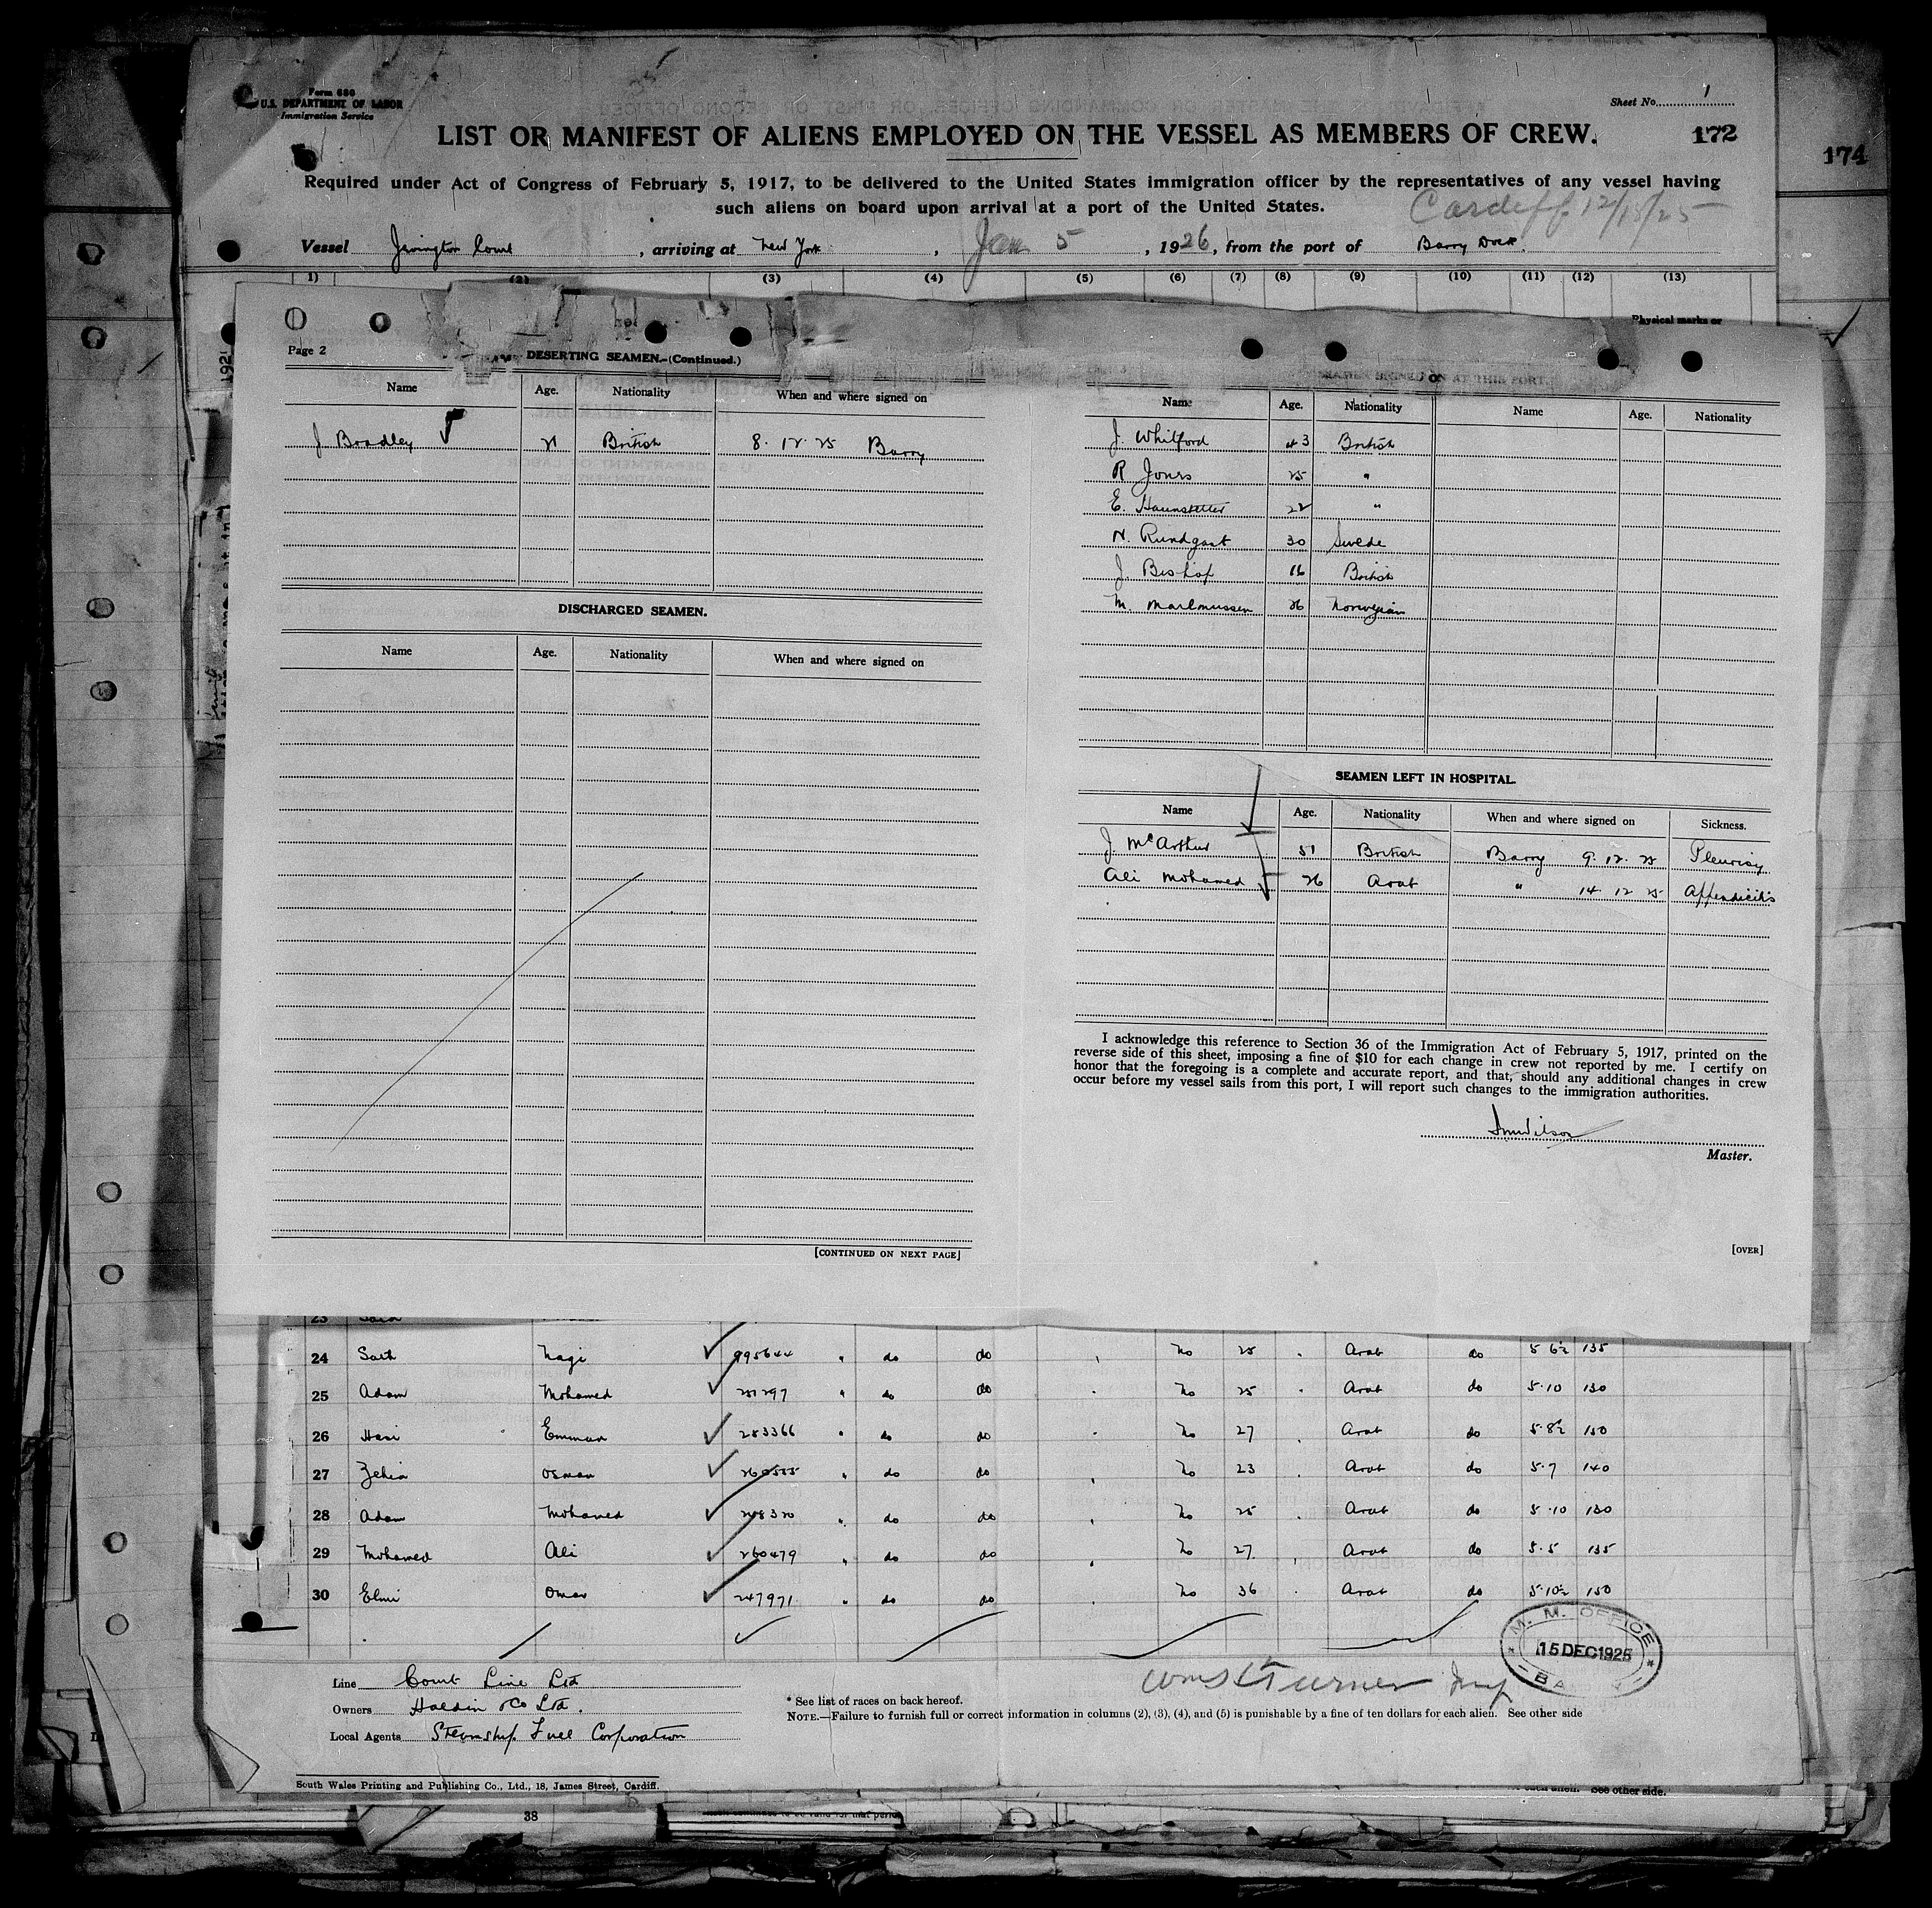 Form 680
U.S. DEPARTMENT OF LABOR
Immigration Service
Sheet No. 1
LIST OR MANIFEST OF ALIENS EMPLOYED ON THE VESSEL AS MEMBERS OF CREW.
172
174
Required under Act of Congress of February 5, 1917, to be delivered to the United States immigration officer by the representatives of any vessel having
such aliens on board upon arrival at a port of the United States.
Cardiff 12/15/25
Vessel Court, arriving at New York, Jan 5, 1926, from the port of Barry Dock.
(1) (2) (3) (4) (5) (6) (7) (8) (9) (10) (11) (12) (13)
Physical marks or
Page 2
DESERTING SEAMEN.—(Continued.)
Name Age. Nationality When and where signed on
J Bradley 21 British 8. 12. 25 Barry
DISCHARGED SEAMEN.
Name Age. Nationality When and where signed on
[CONTINUED ON NEXT PAGE]
SEAMEN SIGNED ON AT THIS PORT.
Name Age. Nationality Name Age. Nationality
J. Whitford 43 British
R Jones 25 "
E. 22 "
N. 30 Swede
J. Bishop 16 British
M. 26 Norwegian
SEAMEN LEFT IN HOSPITAL.
Name Age. Nationality When and where signed on Sickness.
J. McArthur 51 British Barry 9. 12. 25 Pleurisy
Ali Mohamed 26 Arab " 14 12 25 Appendicitis
I acknowledge this reference to Section 36 of the Immigration Act of February 5, 1917, printed on the
reverse side of this sheet, imposing a fine of $10 for each change in crew not reported by me. I certify on
honor that the foregoing is a complete and accurate report, and that, should any additional changes in crew
occur before my vessel sails from this port, I will report such changes to the immigration authorities.
Master.
[OVER]
23
24 Nagi 995644 " do do No 25 Arab do 5 6½ 135
25 Adam Mohamed " do do No 25 Arab do 5.10 130
26 283366 " do do No 27 Arab do 5.8½ 150
27 Osman 260555 " do do No 23 Arab do 5.7 140
28 Adam Mohamed " do do No 25 Arab do 5.10 130
29 Mohamed Ali 260479 " do do No 27 Arab do 5.5 135
30 Elmi Omar 247971 " do do No 36 Arab do 5.10½ 150
M. M. OFFICE
15 DEC 1925
Line Court Line Ltd
Owners Haldin & Co Ltd.
Local Agents Steamship Fuel Corporation
* See list of races on back hereof.
NOTE.—Failure to furnish full or correct information in columns (2), (3), (4), and (5) is punishable by a fine of ten dollars for each alien. See other side
South Wales Printing and Publishing Co., Ltd., 18, James Street, Cardiff.
each alien. See other side.
38